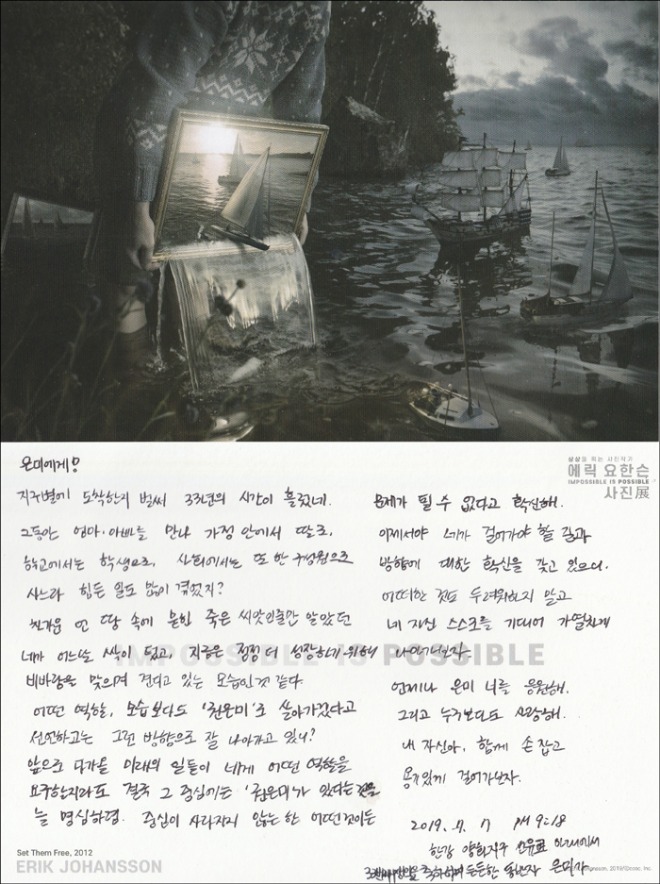 은미에게!
지구별에 도착한지 벌써 33년의 시간이 흘렀네.
그동안 엄마·아빠를 만나 가정 안에서 딸로,
학교에서는 학생으로, 사회에서는 또 한 구성원으로
사느라 힘든 일도 많이 겪었지?
차가운 언 땅 속에 묻힌 죽은 씨앗인줄만 알았던
네가 어느날 싹이 텄고, 지금은 점점 더 성장하기 위해
비바람을 맞으며 견디고 있는 모습인것 같다
어떤 역할, 모습보다도 '권은미'로 살아가겠다고
선언하고는 그런 방향으로 잘 나아가고 있니?
앞으로 다가올 미래의 일들이 네게 어떤 역할을
요구할지라도 결국 그 중심에는 '권은미'가 있다는
늘 명심하렴. 중심이 사라지지 않는 한 어떤것이든
상상을 찍는 사진작가
에릭 요한슨
IMPOSSIBLE IS POSSIBLE
사진展
문제가 될 수 없다고 확신해.
이제서야 네가 걸어가야 할 길과
방향에 대한 확신을 갖고 있으니.
어떠한 것도 두려워하지 말고
네 자신 스스로를 기대어 가열차게
나아가보자.
언제나 은미 너를 응원해.
그리고 누구보다도 사랑해.
내 자신아, 함께 손 잡고
용기있게 걸어가보자.
2019. 7. 7 PM 9:18
한강 양화지구 선유교
든든한 동반자 은미가
IMPOSSIBLE IS POSSIBLE
Set Them Free, 2012
ERIK JOHANSSON